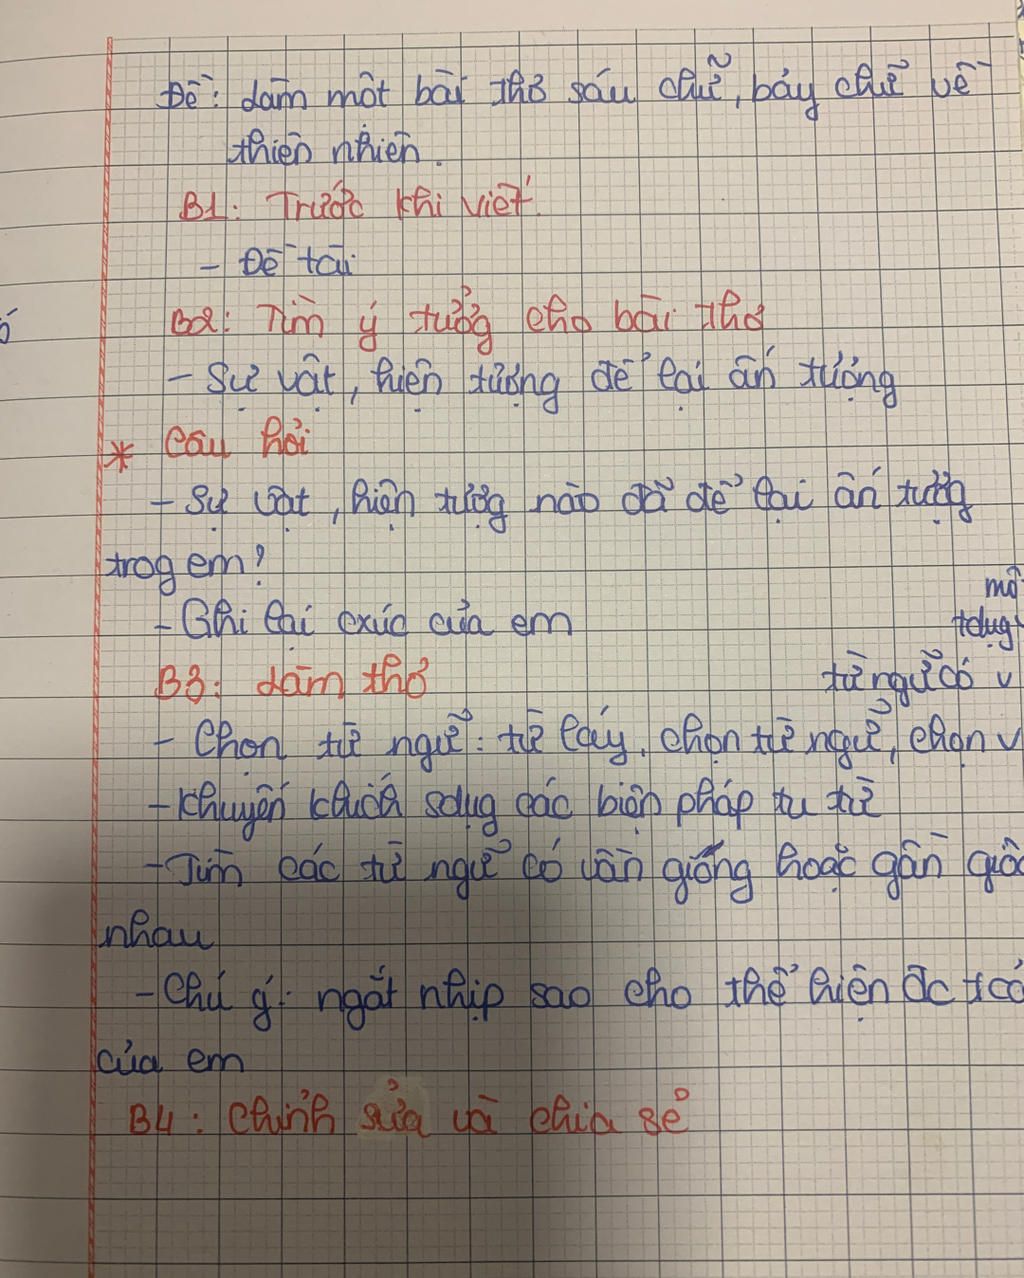 Đề: Làm một bài thơ sáu chữ, bảy chữ về
thiên nhiên.
B1: Trước khi viết.
- Đề tài
B2: Tìm ý tưởng cho bài thơ
- Sự vật, hiện tượng để lại ấn tượng
* Câu hỏi
- Sự vật, hiện tượg nào đã để lại ấn tượg
trog em?
- Ghi lại cxúc của em
B3: Làm thơ
từ ngữ có
- Chọn từ ngữ: từ láy, chọn từ ngữ, chọn
- Khuyến khích sdụg các biện pháp tu từ
- Tìm các từ ngữ có vần giống hoặc gần
nhau
- Chú ý: ngắt nhịp sao cho thể hiện đc
của em
B4: Chỉnh sửa và chia sẻ